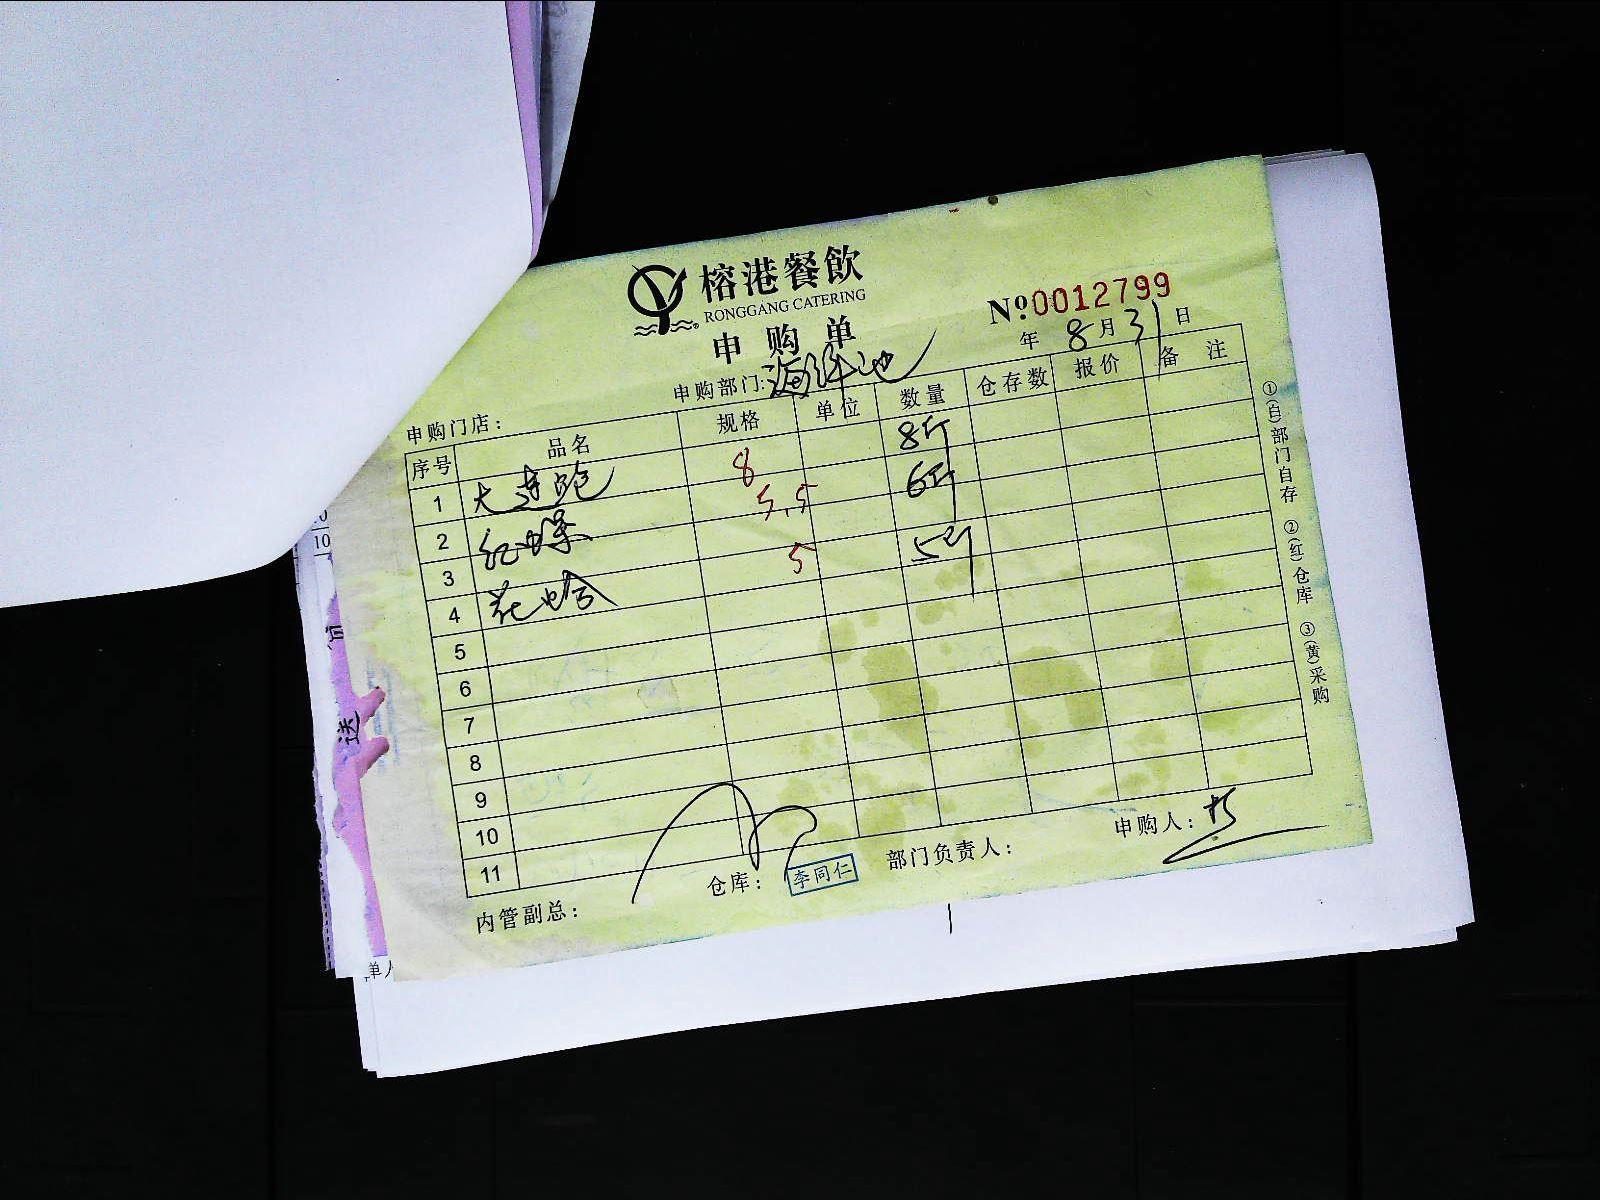 榕港餐飲
RONGGANG CATERING
申购单
No.0012799
年 8月31日
申购部门:海鲜池
申购门店:
序号 品名 规格 单位 数量 仓存数 报价 备注
1 大连鲍 8 8斤
2 红螺 5.5 6斤
3 花蛤 5 5斤
4
5
6
7
8
9
10
11
①(白)部门自存 ②(红)仓库 ③(黄)采购
内管副总: 仓库: 李同仁 部门负责人: 申购人:
10
送
单人